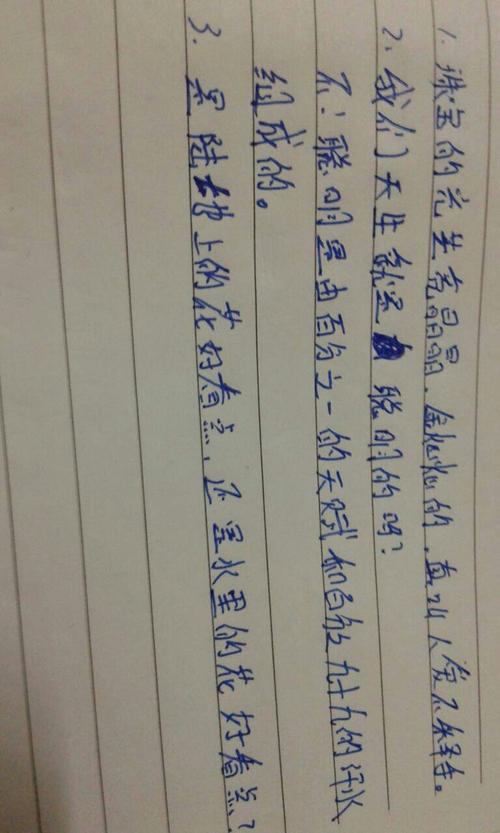 1. 珠宝的光生亮晶晶、金灿灿的,直叫人舍不释手。
2. 我们天生就是聪明的吗?
不!聪明是由百分之一的天赋和百分九十九的汗水
组成的。
3. 是陆地上的花好看点,还是水里的花好看点?